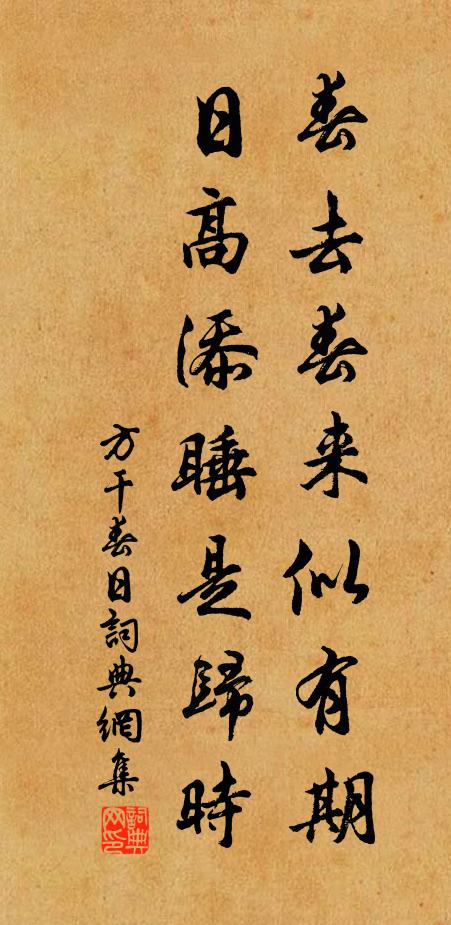 春去春来似有期
日高添睡是歸時
方干春日詞典網集
詞典网印